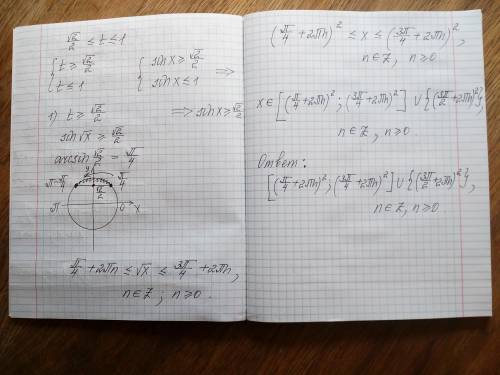 √2/2 ≤ t ≤ 1
{ t ≥ √2/2 { sin x ≥ √2/2
{ t ≤ 1 { sin x ≤ 1 ⟹
1) t ≥ √2/2 ⟹ sin x ≥ √2/2
sin √x ≥ √2/2
arcsin √2/2 = π/4
y
π-π/4 π/4
√2/2
π 0 x
π/4 + 2πn ≤ √x ≤ 3π/4 + 2πn,
n∈Z; n≥0.
(π/4 + 2πn)² ≤ x ≤ (3π/4 + 2πn)²,
n∈Z, n≥0
x∈[(π/4 + 2πn)²; (3π/4 + 2πn)²] ∪ {(3π/2 + 2πn)²},
n∈Z, n≥0
Ответ:
[(π/4 + 2πn)²; (3π/4 + 2πn)²] ∪ {(3π/2 + 2πn)²},
n∈Z, n≥0